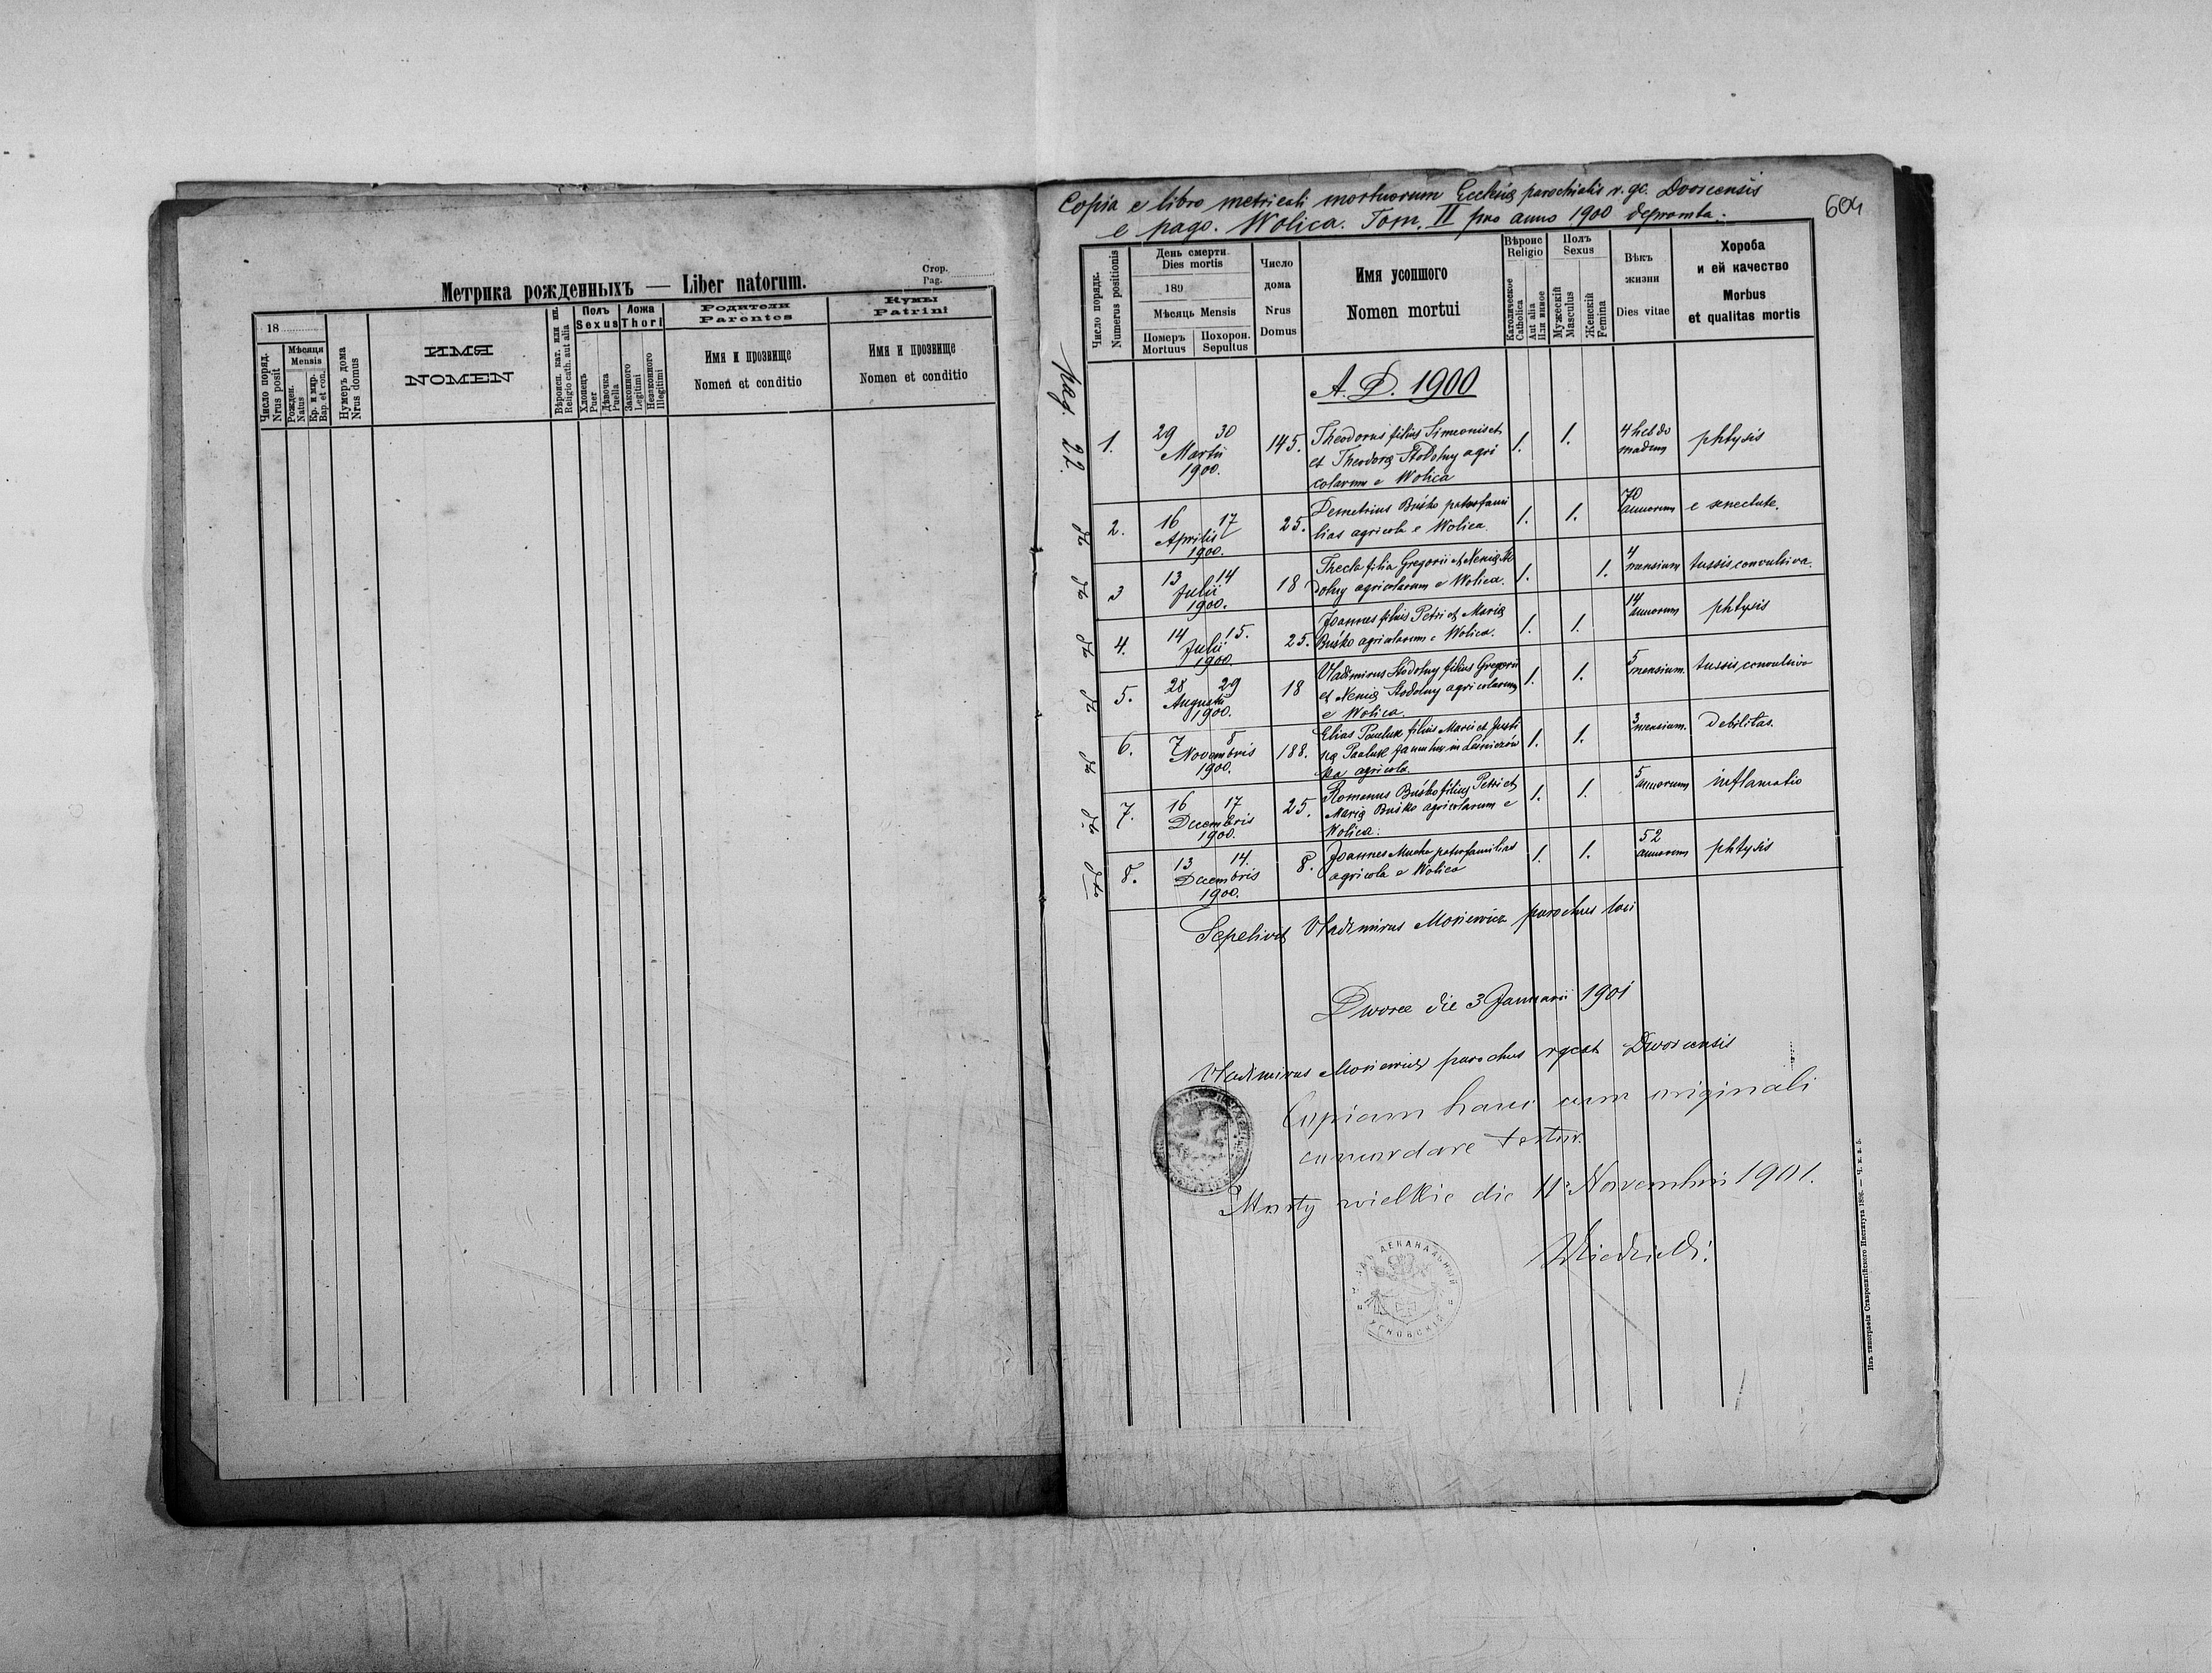 Стор.
Pag.
Метрика рожденныхъ — Liber natorum.
18
Число поряд.
Nrus posit
Мѣсяця
Mensis
Рожден.
Natus
Кр. и мѵр.
Bap. et con.
Нумеръ дома
Nrus domus
ИМЯ
NOMEN
Вѣроисп. кат. или ин.
Religio cath. aut alia
Полъ
Sexus
Хлопецъ
Puer
Дѣвочка
Puella
Ложа
Thori
Законного
Legitimi
Незаконного
Illegitimi
Родители
Parentes
Имя и прозвище
Nomen et conditio
Кумы
Patrini
Имя и прозвище
Nomen et conditio
604
Copia e libro metricali mortuorum Ecclesię parochialis r. gc. Dvorcensis
e pago. Wolica. Tom. II pro anno 1900 depromta.
Число порядк.
Numerus positionis
День смерти
Dies mortis
189
Мѣсяць Mensis
Померъ
Mortuus
Похорон.
Sepultus
Число
дома
Nrus
Domus
Имя усопшого
Nomen mortui
Вѣроис
Religio
Католическое
Catholica
Aut alia
Или иное
Полъ
Sexus
Мужескій
Masculus
Женскій
Femina
Вѣкъ
жизни
Dies vitae
Хороба
и ей качество
Morbus
et qualitas mortis
A. D. 1900
pag. 22.
1. 29 30 145. Theodorus filius Simeonis et 1. 1. 4 hebdo phtysis
Martii et Theodorę Stodolny agri madum
1900. colarum e Wolica
dto 2. 16 17 25. Demetrius Buśko paterfami 1. 1. 70 e senectute.
Aprilis lias agricola e Wolica. annorum
1900.
dto 3 13 14 18 Thecla filia Gregorii et Xenię Sto 1. 1. 4 tussis convulsiva.
Julii dolny agricolarum e Wolica. mensium
1900.
dto 4. 14 15. 25. Joannes filius Petri et Marię 1. 1. 14 phtysis
Julii Buśko agricolarum e Wolica. annorum
1900.
dto 5. 28 29 18 Vladimirus Stodolny filius Gregorii 1. 1. 5 tussis convulsiva
Augusti et Xenię Stodolny agricolarum mensium.
1900. e Wolica.
dto 6. 7 8 188. Elias Pauluk filius Marii et Justi 1. 1. 3 Debilitas.
Novembris nę Pauluk famulus in Leśniczów mensium.
1900. ka agricola.
dto 7. 16 17 25. Romanus Buśko filius Petri et 1. 1. 5 inflamatio
Decembris Marię Buśko agricolarum e annorum
1900. Wolica.
dto 8. 13 14. 8. Joannes Mucha paterfamilias 1. 1. 52 phtysis
Decembris agricola e Wolica annorum
1900.
Sepelivit Vladimirus Mosiewicz parochus loci
Dworce die 3 Januarii 1901
Vladimirus Mosiewicz parochus rgcat Dworcensis
Copiam hanc cum originali
concordare testur.
Mosty wielkie die 11 Novembris 1901.
ДЕКАНАЛЬНЫЙ
Изъ типографіи Ставропигійского Института 1896. — Ч. к. а. 5.